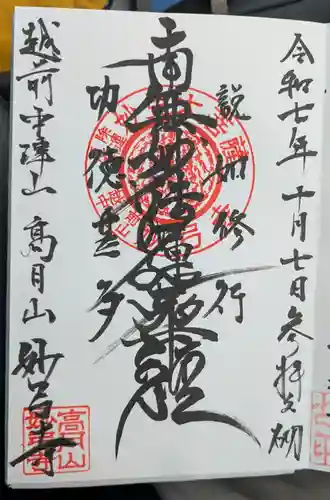 令和七年十月七日参拝之砌
説如修行
南無妙法蓮華経
功徳甚多
越前中津山 高月山 妙昌寺